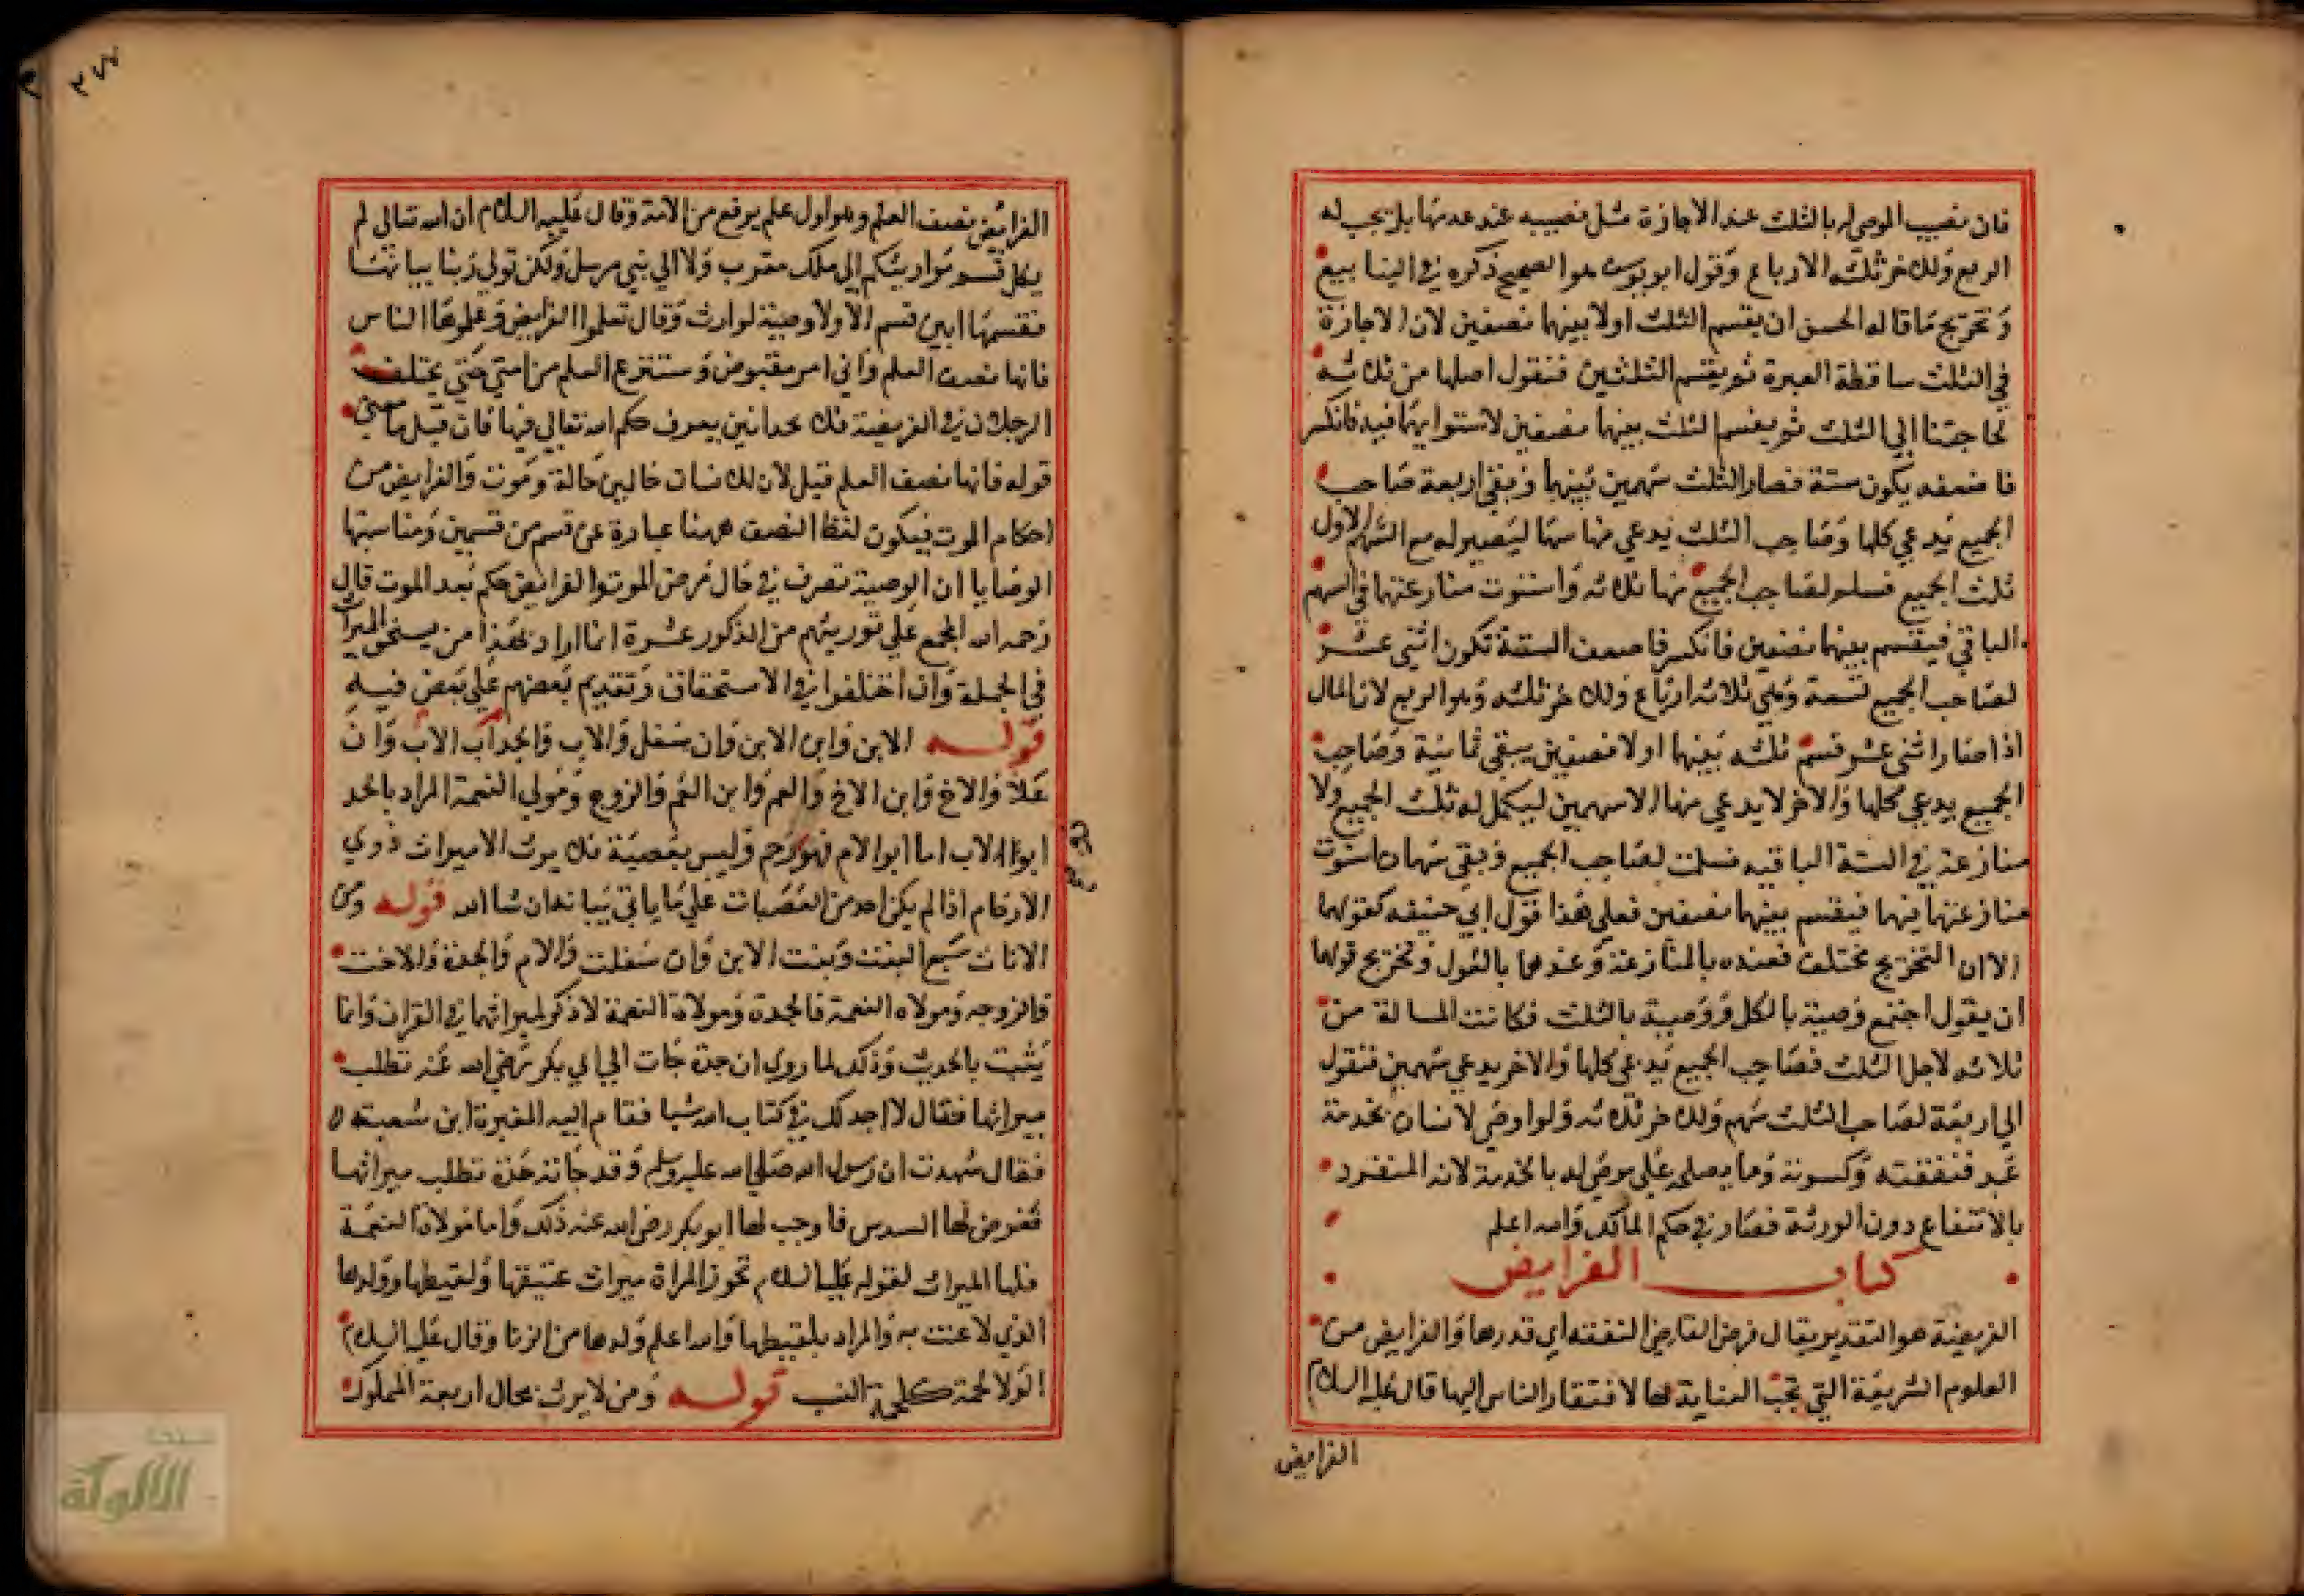 فان نصيب الموصى له بالثلث عند الاجازة مثل نصيبه عند عدمها بل يجب له
الربع وذلك خر ثلثه الارباع وقول ابو يوسف هو الصحيح ذكره في الينابيع
وتخريج ما قاله الحسن ان يقسم الثلث اولا بينهما نصفين لان الاجازة
في الثلث ساقطة العبرة ثم يقسم الثلثين فنقول اصلها من ثلاثه
لحاجتنا الي الثلث ثم يقسم الثلث بينهما نصفين لاستوايهما فيه فانكسر
فاضعفه يكون ستة فصار الثلث سهمين بينهما وبقي اربعة صاحب
الجميع يدعي كلها وصاحب الثلث يدعي منها سهما ليصير له مع السهم الاول
ثلث الجميع فسلم لصاحب الجميع منها ثلاثه واستوت منازعتهما في السهم
الباقي فيقسم بينهما نصفين فانكسر فاضعف الستة تكون اثني عشر
لصاحب الجميع تسعة وهي ثلاثه ارباع وذلك خر ثلثه وهو الربع لان المال
اذا صار اثني عشر قسم ثلثه بينهما اولا نصفين يبقي ثمانية وصاحب
الجميع يدعي كلها والاخر لا يدعي منها الا سهمين ليكمل له ثلث الجميع ولا
منازعة في الستة الباقيه فسلمت لصاحب الجميع وبقي سهمان استوت
منازعتهما فيهما فيقسم بينهما نصفين فعلي هذا قول ابي حنيفه كقولهما
الا ان التخريج مختلف فعنده بالمنازعة وعندهما بالعول وتخريج قولهما
ان يقول اجتمع وصية بالكل ووصية بالثلث فكانت المسالة من
ثلاثه لاجل الثلث فصاحب الجميع يدعي كلها والاخر يدعي سهمين فنقول
الي اربعة لصاحب الثلث سهم وذلك خر ثلاثه ولو اوصي لانسان بخدمة
عبد فنفقته وكسوته وما يصلحه علي موصي له بالخدمة لانه المتفرد
بالانتفاع دون الورثة فصار في حكم المالك والله اعلم
كتاب الفرايض
الفريضة هو التقدير يقال فرض القاضي النفقه اي قدرها والفرايض من
العلوم الشريفة التي تجب العناية لها لافتقار الناس اليها قال عليه السلام
الفرايض
٢٧٧
الفرايض نصف العلم وهو اول علم يرفع من الامة وقال عليه السلام ان الله تعالي لم
يكل قسم مواريثكم الي ملك مقرب ولا الي نبي مرسل ولكن تولي ربنا بيانها
فقسمها ابين قسم الا ولا وصية لوارث وقال تعلموا الفرايض وعلموها الناس
فانها نصف العلم واني امر مقبوض وستنزع العلم من امتي حتي يختلف
الرجلان في الفريضة فلا يجدا من يعرف حكم الله تعالي فيها فان قيل ما معني
قوله فانها نصف العلم قيل لان للانسان حالين حالة وموت والفرايض من
احكام الموت فيكون لفظ النصف ههنا عبارة عن قسم من قسمين ومناسبتها
الوصايا ان الوصية تصرف في حال مرض الموت والفرايض حكم بعد الموت قال
رحمه الله المجمع علي توريثهم من الذكور عشرة انما اراد بهذا من يستحق الميراث
في الجملة وان اختلفوا في الاستحقاق وتقديم بعضهم علي بعض فيه
قوله الابن وابن الابن وان سفل والاب والجد اب الاب وان
علا والاخ وابن الاخ والعم وابن العم والزوج ومولي النعمة المراد بالجد
ابو الاب اما ابو الام فهو رحم وليس بعصبة فلا يرث الا ميراث ذوي
الارحام اذا لم يكن احد من العصبات علي ما ياتي بيانه ان شا الله قوله ومن
الاناث سبع البنت وبنت الابن وان سفلت والام والجدة والاخت
والزوجه ومولاه النعمة فالجدة ومولاة النعمة لا ذكر لميراثهما في القران وانما
يثبت بالحديث وذلك لما روي ان جدة جات الي ابي بكر رضي الله عنه تطلب
ميراثها فقال لا اجد لك في كتاب الله شيا فقام اليه المغيرة ابن شعبته
فقال شهدت ان رسول الله صلي الله عليه وسلم وقد جاته جدة تطلب ميراثها
ففرض لها السدس فاوجب لها ابو بكر رضي الله عنه ذلك واما مولاة النعمة
فلها الميراث لقوله عليه السلام تحوز المراة ميراث عتيقها ولقيطها وولدها
الذي لاعنت به والمراد بلقيطها والله اعلم ولدها من الزنا وقال عليه السلام
الولا لحمة كلحمة النسب قوله ومن لا يرث بحال اربعة المملوك
الألوكة